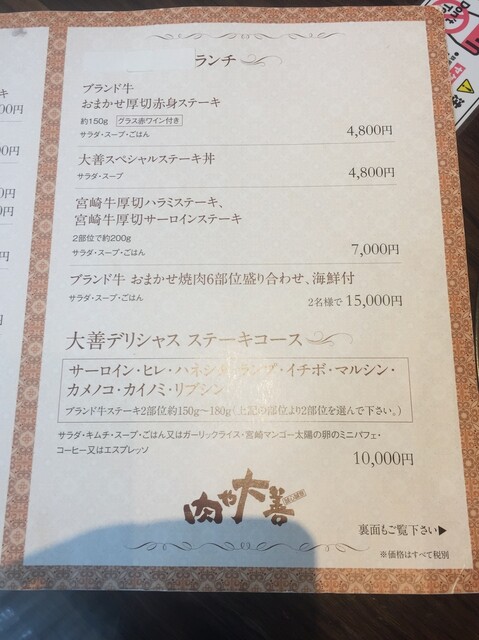 ランチ
ブランド牛
おまかせ厚切赤身ステーキ
約150g グラス赤ワイン付き
サラダ・スープ・ごはん
4,800円
大善スペシャルステーキ丼
サラダ・スープ
4,800円
宮崎牛厚切ハラミステーキ、
宮崎牛厚切サーロインステーキ
2部位で約200g
サラダ・スープ・ごはん
7,000円
ブランド牛 おまかせ焼肉6部位盛り合わせ、海鮮付
サラダ・スープ・ごはん
2名様で 15,000円
大善デリシャス ステーキコース
サーロイン・ヒレ・ハネシタ・ランプ・イチボ・マルシン・
カメノコ・カイノミ・リブシン
ブランド牛ステーキ2部位約150g〜180g(上記の部位より2部位を選んで下さい。)
サラダ・キムチ・スープ・ごはん又はガーリックライス・宮崎マンゴー太陽の卵のミニパフェ・
コーヒー又はエスプレッソ
10,000円
肉や大善
裏面もご覧下さい▶
※価格はすべて税別